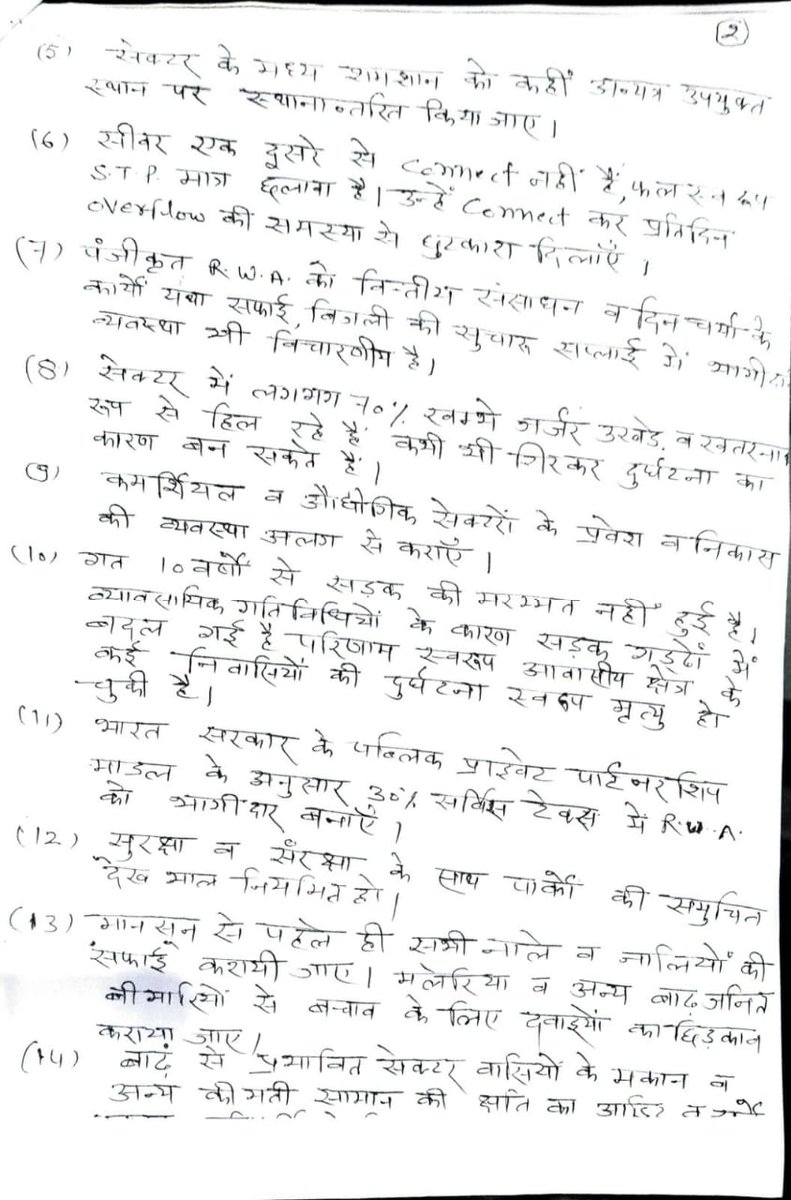 (2)
(5) सेक्टर के मध्य शमशान को कहीं अन्यत्र उपयुक्त
स्थान पर स्थानान्तरित किया जाए।
(6) सीवर एक दूसरे से Connect नहीं हैं, फलस्वरूप
S.T.P. मात्र छलावा है। उन्हें Connect कर प्रतिदिन
overflow की समस्या से छुटकारा दिलाएँ।
(7) पंजीकृत R.W.A. को वित्तीय संसाधन व दिनचर्या के
कार्यों यथा सफाई, बिजली की सुचारू सप्लाई में
व्यवस्था भी विचारणीय है।
(8) सेक्टर में लगभग 70% खम्भे जर्जर उखड़े व खतरनाक
रूप से हिल रहे हैं कभी भी गिरकर दुर्घटना का
कारण बन सकते हैं।
(9) कमर्शियल व औद्योगिक सेक्टरों के प्रवेश व निकास
की व्यवस्था अलग से कराएँ।
(10) गत 10 वर्षों से सड़क की मरम्मत नहीं हुई है।
व्यावसायिक गतिविधियों के कारण सड़क गड्ढों में
बदल गई है परिणाम स्वरूप आवासीय क्षेत्र के
कई निवासियों की दुर्घटना स्वरूप मृत्यु हो
चुकी है।
(11) भारत सरकार के पब्लिक प्राइवेट पार्टनरशिप
माडल के अनुसार 30% सर्विस टेक्स में R.W.A.
को भागीदार बनाएँ।
(12) सुरक्षा व संरक्षा के साथ पार्कों की समुचित
देखभाल नियमित हो।
(13) मानसून से पहले ही सभी नाले व नालियों की
सफाई करायी जाए। मलेरिया व अन्य बाढ़ जनित
बीमारियों से बचाव के लिए दवाइयों का छिड़काव
कराया जाए।
(14) बाढ़ से प्रभावित सेक्टर वासियों के मकान व
अन्य कीमती सामान की क्षति का